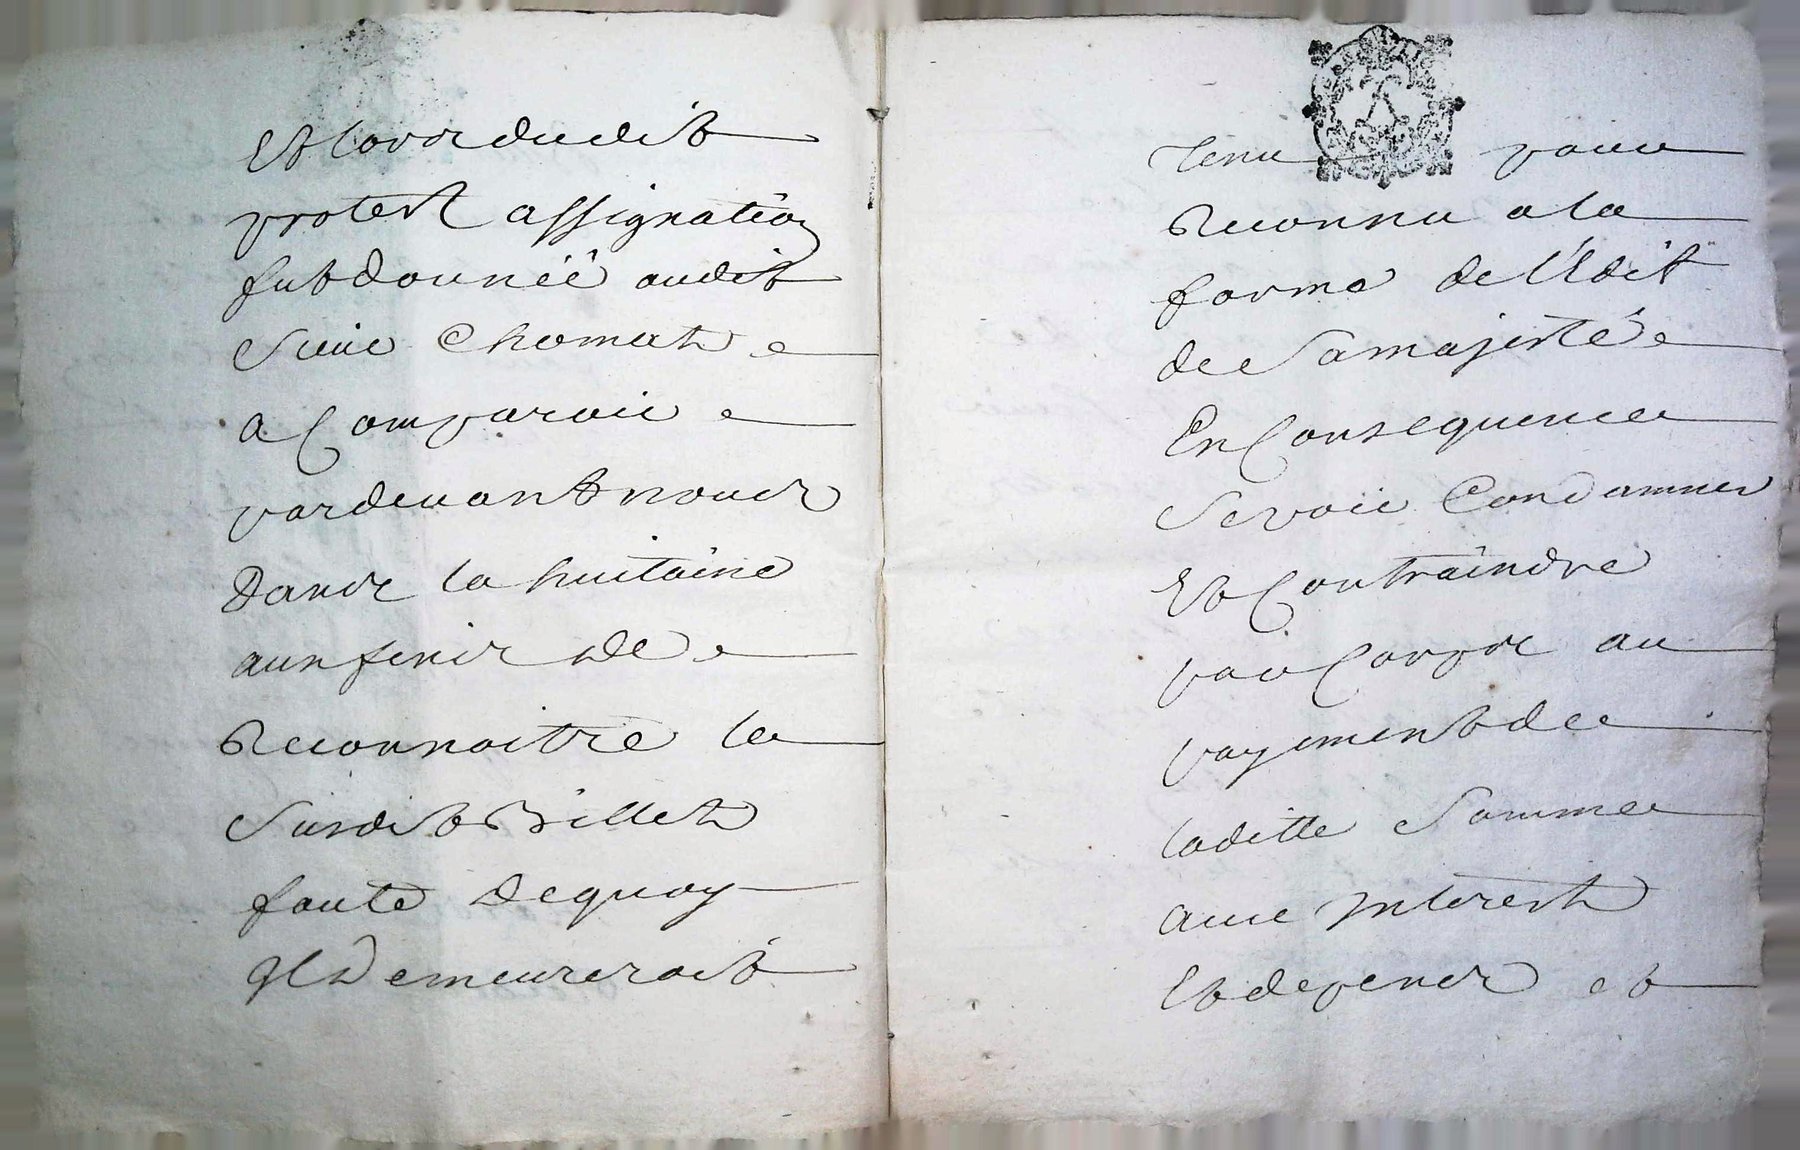 Et lors dudit
protest assignation
fut donnéé audit
Sieur Chomat
a Comparoir
pardevant nous
Dans la huitaine
aux fins de
Reconnoitre le
Susdit Billet
faute dequoy
Il Demeureroit
Tenu pour
Reconnu a la
forme de l'Edit
de Sa majesté
En Consequence
Se voir Condamner
Et Contraindre
par Corps au
payement de
laditte Somme
avec Interest
Et depens et